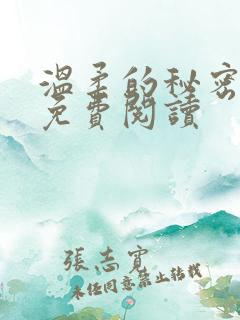 溫柔的秘密
免費閱讀
張志寬
未經同意禁止轉載